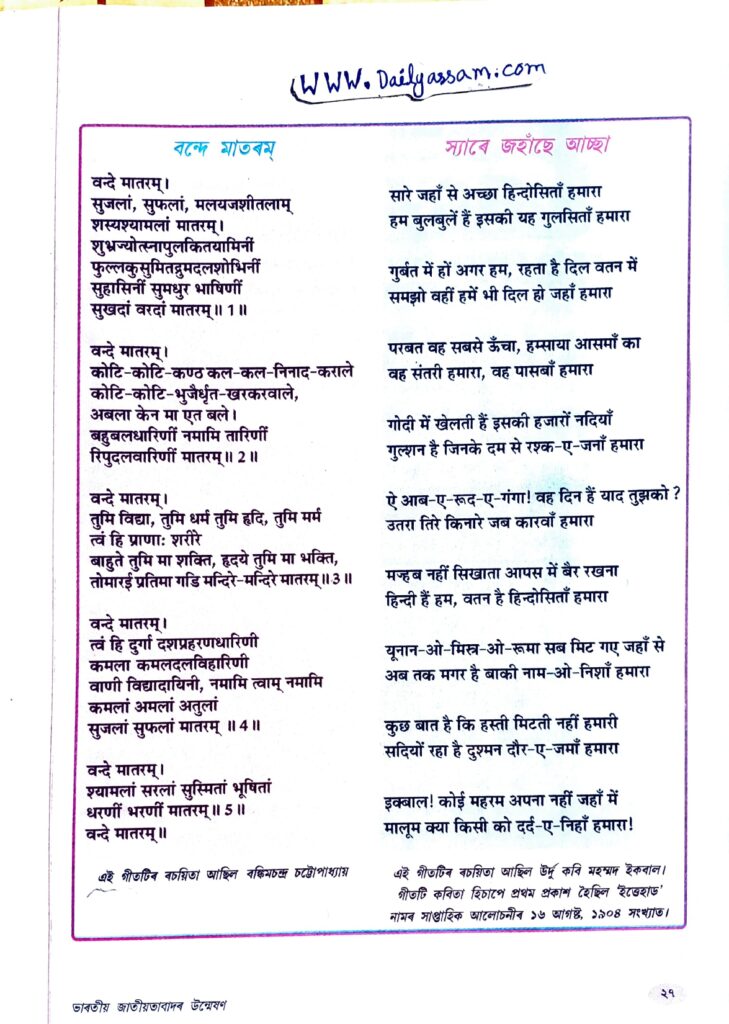 www.Dailyassam.com
বন্দে মাতৰম্
वन्दे मातरम्।
सुजलां, सुफलां, मलयजशीतलाम्
शस्यश्यामलां मातरम्।
शुभ्रज्योत्स्नापुलकितयामिनीं
फुल्लकुसुमितद्रुमदलशोभिनीं
सुहासिनीं सुमधुर भाषिणीं
सुखदां वरदां मातरम्॥ 1॥
वन्दे मातरम्।
कोटि-कोटि-कण्ठ कल-कल-निनाद-कराले
कोटि-कोटि-भुजैर्धृत-खरकरवाले,
अबला केन मा एत बले।
बहुबलधारिणीं नमामि तारिणीं
रिपुदलवारिणीं मातरम्॥ 2॥
वन्दे मातरम्।
तुमि विद्या, तुमि धर्म तुमि हृदि, तुमि मर्म
त्वं हि प्राणाः शरीरे
बाहुते तुमि मा शक्ति, हृदये तुमि मा भक्ति,
तोमारई प्रतिमा गडि मन्दिरे-मन्दिरे मातरम्॥ 3॥
वन्दे मातरम्।
त्वं हि दुर्गा दशप्रहरणधारिणी
कमला कमलदलविहारिणी
वाणी विद्यादायिनी, नमामि त्वाम् नमामि
कमलां अमलां अतुलां
सुजलां सुफलां मातरम् ॥ 4॥
वन्दे मातरम्।
श्यामलां सरलां सुस्मितां भूषितां
धरणीं भरणीं मातरम्॥ 5॥
वन्दे मातरम्॥
এই গীতটিৰ ৰচয়িতা আছিল বঙ্কিমচন্দ্ৰ চট্টোপাধ্যায়
স্যাৰে জহাঁছে আচ্ছা
सारे जहाँ से अच्छा हिन्दोसिताँ हमारा
हम बुलबुलें हैं इसकी यह गुलसिताँ हमारा
गुर्बत में हों अगर हम, रहता है दिल वतन में
समझो वहीं हमें भी दिल हो जहाँ हमारा
परबत वह सबसे ऊँचा, हम्साया आसमाँ का
वह संतरी हमारा, वह पासबाँ हमारा
गोदी में खेलती हैं इसकी हजारों नदियाँ
गुल्शन है जिनके दम से रश्क-ए-जनाँ हमारा
ऐ आब-ए-रूद-ए-गंगा! वह दिन हैं याद तुझको ?
उतरा तिरे किनारे जब कारवाँ हमारा
मज्हब नहीं सिखाता आपस में बैर रखना
हिन्दी हैं हम, वतन है हिन्दोसिताँ हमारा
यूनान-ओ-मिस्र-ओ-रूमा सब मिट गए जहाँ से
अब तक मगर है बाकी नाम-ओ-निशाँ हमारा
कुछ बात है कि हस्ती मिटती नहीं हमारी
सदियों रहा है दुश्मन दौर-ए-जमाँ हमारा
इक्बाल! कोई महरम अपना नहीं जहाँ में
मालूम क्या किसी को दर्द-ए-निहाँ हमारा!
এই গীতটিৰ ৰচয়িতা আছিল উৰ্দু কবি মহম্মদ ইকবাল।
গীতটি কবিতা হিচাপে প্ৰথম প্ৰকাশ হৈছিল 'ইত্তেহাড'
নামৰ সাপ্তাহিক আলোচনীৰ ১৬ আগষ্ট, ১৯০৪ সংখ্যাত।
ভাৰতীয় জাতীয়তাবাদৰ উন্মেষণ
২৭